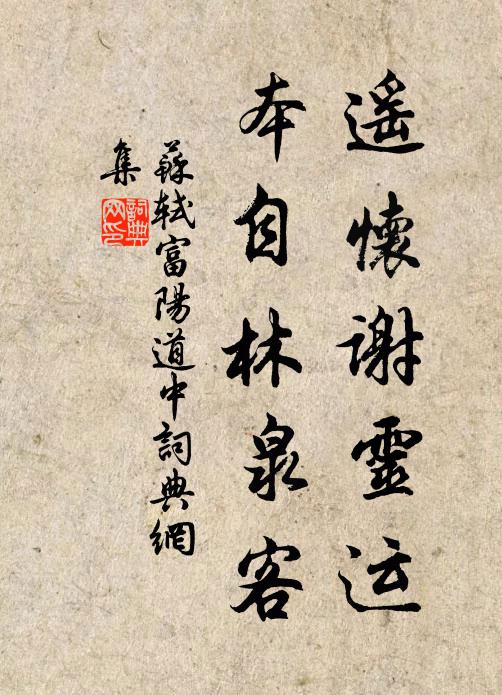 遥懷謝靈运
本自林泉客
蘇軾富陽道中詞典網
集
詞典
网印